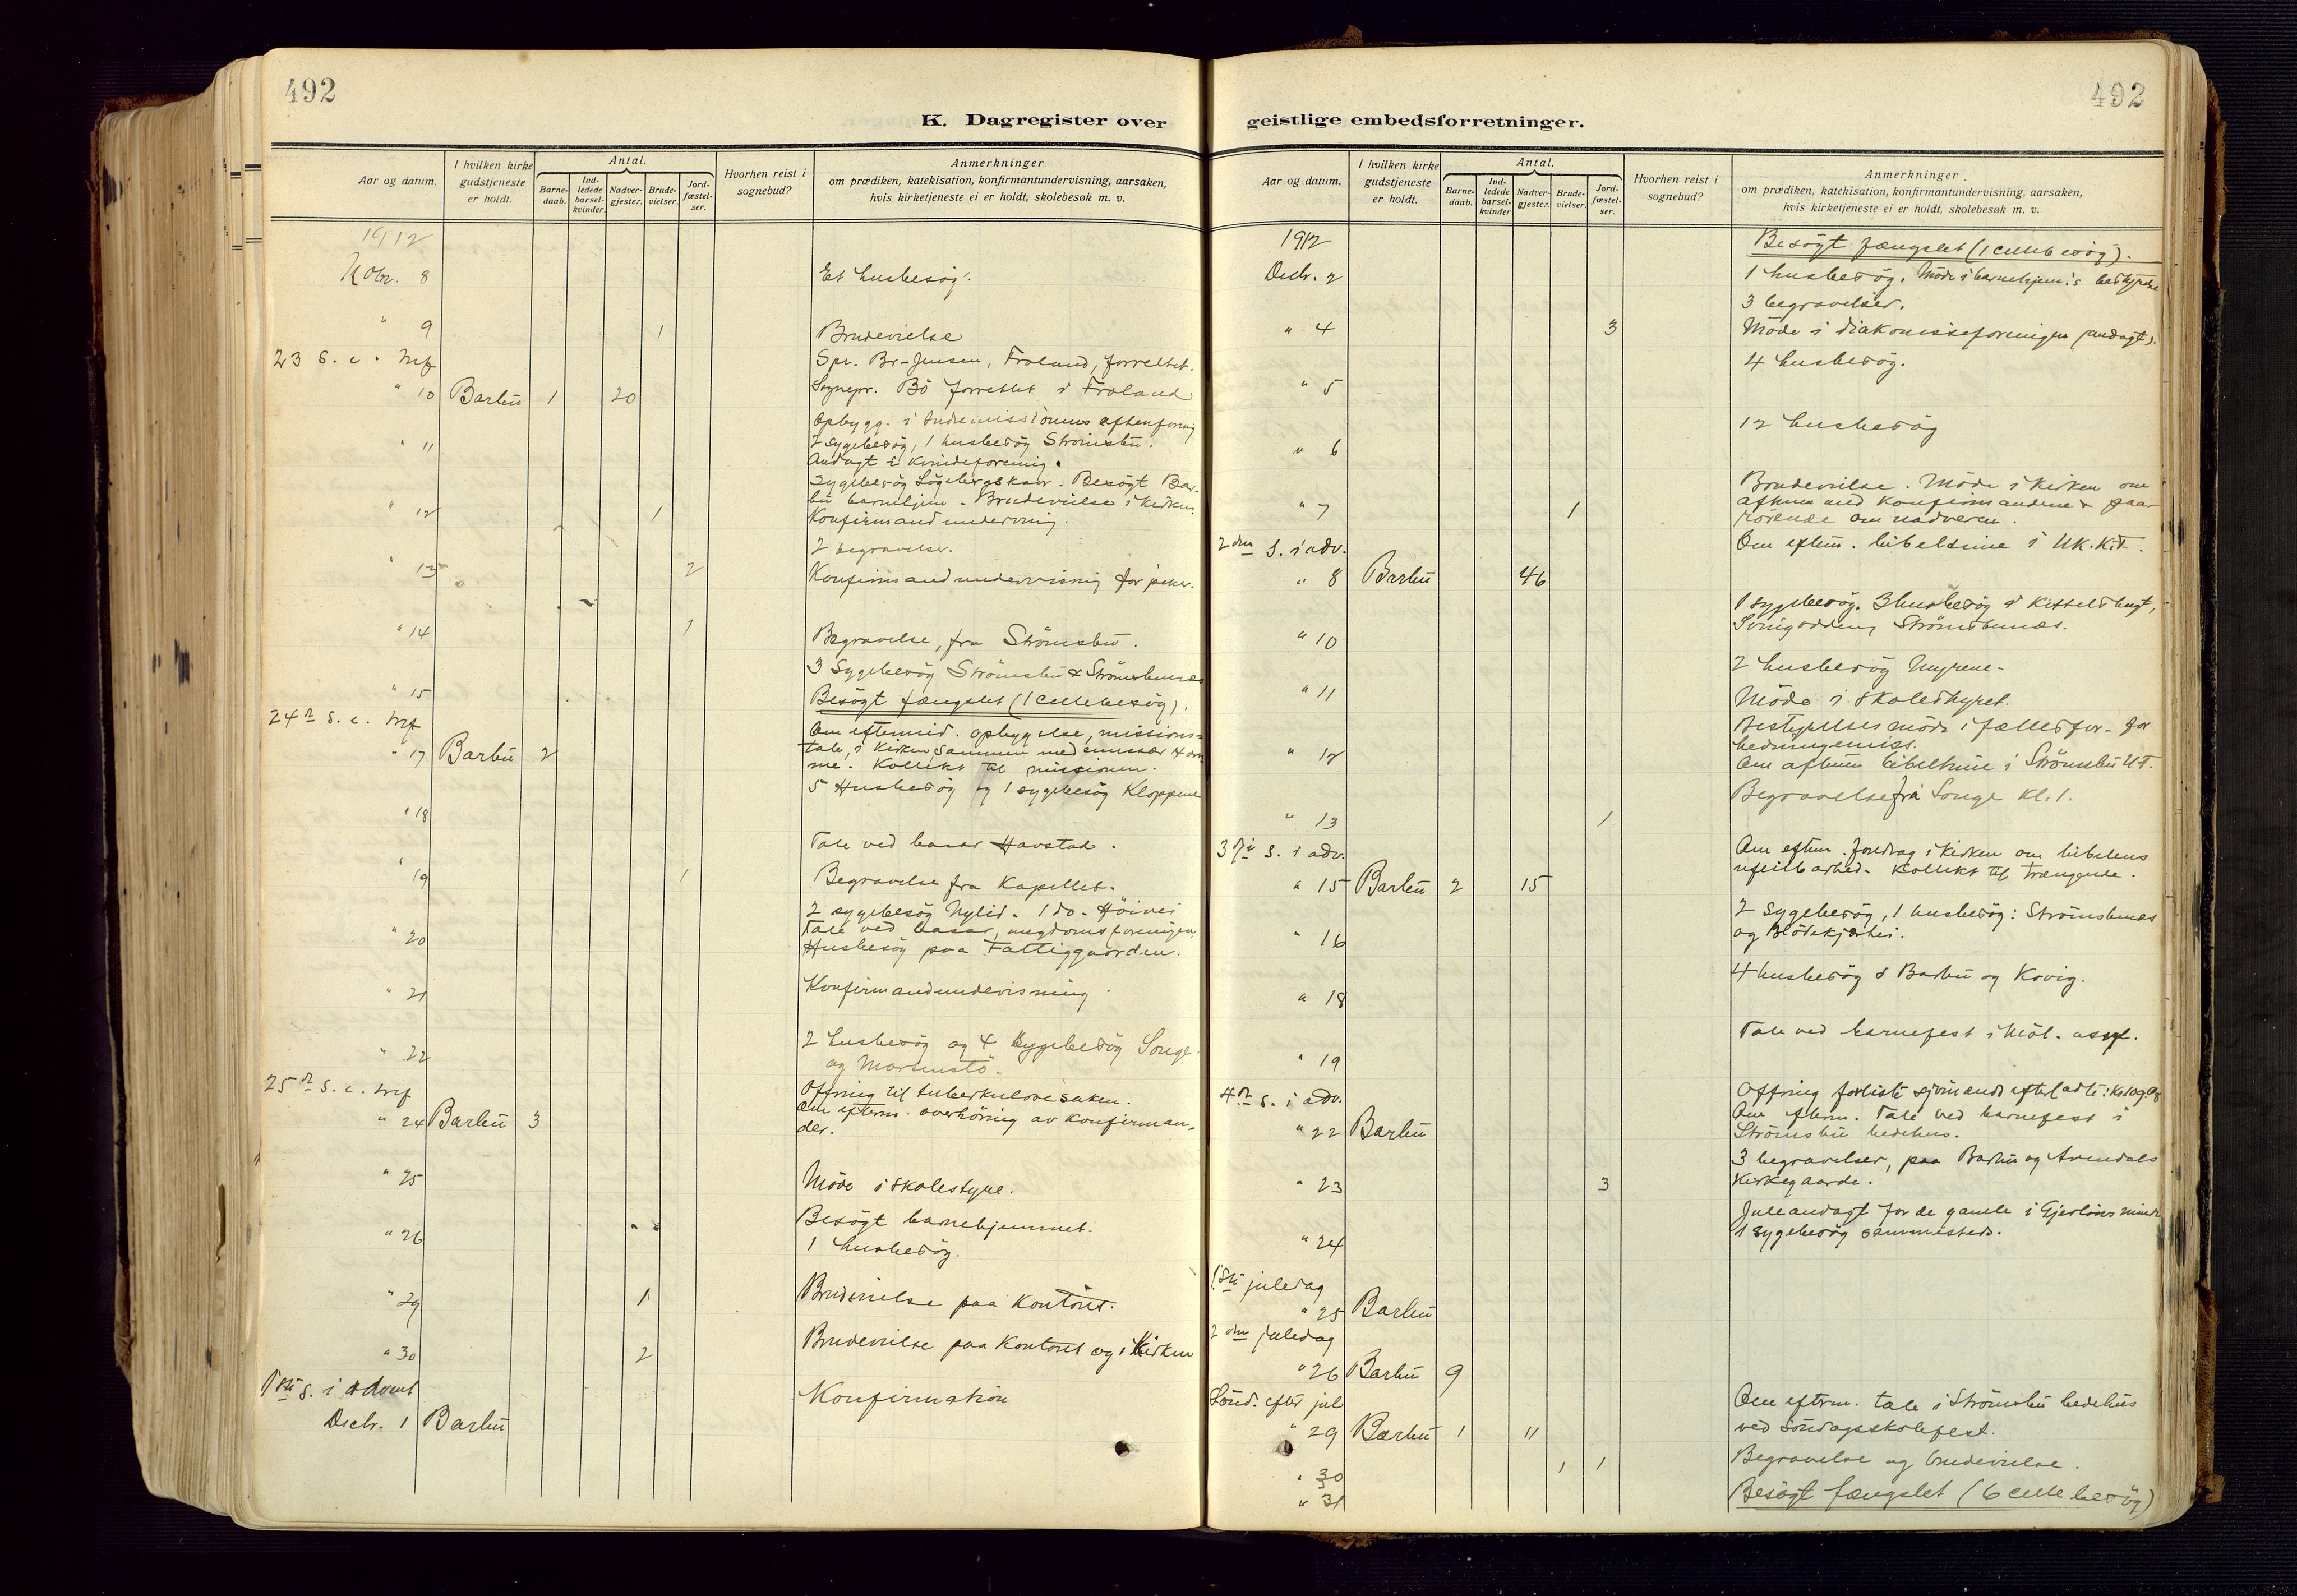 492
K. Dagregister over
Aar og datum.
I hvilken kirke gudstjeneste er holdt.
Antal.
Barne-daab.
Ind-ledede barsel-kvinder.
Nadver-gjester.
Brude-vielser.
Jord-fæstel-ser.
Hvorhen reist i sognebud?
Anmerkninger
om prædiken, katekisation, konfirmantundervisning, aarsaken,
hvis kirketjeneste ei er holdt, skolebesøk m. v.
1912
Novbr. 8 Et husbesøg.
" 9 1 Brudevielse
23 S. e. Trf Spr. Br-Jensen, Froland, forrettet.
" 10 Barbu 1 20 Sognepr. Bö forrettet i Froland
Opbygg. i Indremissionens aftenforening
" 11 2 sygebesøg, 1 husbesøg Strömsbu.
Andagt i kvindeforening.
Sygebesøg Besøgt Bar-
bu barnehjem. Brudevielse i kirken.
" 12 1 Konfirmandundervisning.
2 begravelser.
" 13 2 Konfirmandundervisning for piker.
" 14 1 Begravelse, fra Strömsbu.
3 Sygebesøg Strömsbu & Strömsbunæs
" 15 Besøgt fængslet (1 cellebesøg).
24n S. e. Trf
Om eftermid. opbyggelse, missions-
" 17 Barbu 2 tale, i kirken sammen med
Kollekt til missionen.
5 Husbesøg og 1 sygebesøg Kloppene
" 18
Tale ved basar Havstad.
" 19 1 Begravelse fra Kapellet.
2 sygebesøg Nylid. 1 do. Höivei
" 20 Tale ved basar, ungdomsforeningen
Husbesøg paa Fattiggaarden.
" 21 Konfirmandundervisning.
" 22 2 husbesøg og 4 sygebesøg Songe
og
25n S. e. Trf Offring til tuberkulosesaken.
" 24 Barbu 3 Om efterm. overhöring av konfirman-
der.
" 25 Möde i skolestyre.
" 26 Besøgt barnehjemmet.
1 husbesøg.
" 29 1 Brudevielse paa Kontoret.
" 30 2 Brudevielse paa Kontoret og i Kirken
1ste S. i Advent Konfirmation
Decbr. 1 Barbu
492
geistlige embedsforretninger.
Aar og datum.
I hvilken kirke gudstjeneste er holdt.
Antal.
Barne-daab.
Ind-ledede barsel-kvinder
Nadver-gjester.
Brude-vielser.
Jord-fæstel-ser.
Hvorhen reist i sognebud?
Anmerkninger.
om prædiken, katekisation, konfirmantundervisning, aarsaken,
hvis kirketjeneste ei er holdt, skolebesøk m. v.
1912 Besøgt fængslet (1 cellebesøg).
Decbr. 2 1 husbesøg. Möde i barnehjem.s bestyrelse
3 begravelser.
" 4 3 Möde i diakonisseforeningen (andagt).
4 husbesøg.
" 5
12 husbesøg
" 6
Brudevielse. Möde i kirken om
" 7 1 aftenen med konfirmandene & paa-
rörende om nadveren.
2den S. i adv. Om eftm. bibeltime i UK.K.F.
" 8 Barbu 46
1 sygebesøg. 3 husbesøg i Kittelsbugt,
" 10 Strömsbunæs.
2 husbesøg Myrene.
" 11 Möde i skolestyret.
Bestyrelsesmöde i fællesfor. for
" 12 hedningemiss.
Om aftenen bibeltime i Strömsbu UF.
Begravelse fra Songe kl. 1.
" 13 1
3die S. i adv. Om eftm. foredrag i kirken om bibelens
" 15 Barbu 2 15 ufeilbarhed. Kollekt til trængende.
2 sygebesøg, 1 husbesøg: Strömsbunæs
" 16 og Blödekjærhei.
4 husbesøg i Barbu og Kovig.
" 18
Tale ved barnefest i asyl.
" 19
4n S. i adv. Offring forliste sjömænds efterladte:
" 22 Barbu Om efterm. Tale ved barnefest i
Strömsbu bedehus.
3 begravelser, paa Barbu og Arendals
" 23 3 Kirkegaarde.
Juleandagt for de gamle i Gjerlöws minde
" 24 1 sygebesøg sammesteds.
1ste juledag
" 25 Barbu
2den juledag
" 26 Barbu 9
Sönd. efter jul Om efterm. tale i Strömsbu bedehus
" 29 Barbu 1 11 ved Söndagsskolefest.
" 30 1 1 Begravelse og brudevielse.
" 31 Besøgt fængslet (6 cellebesøg)